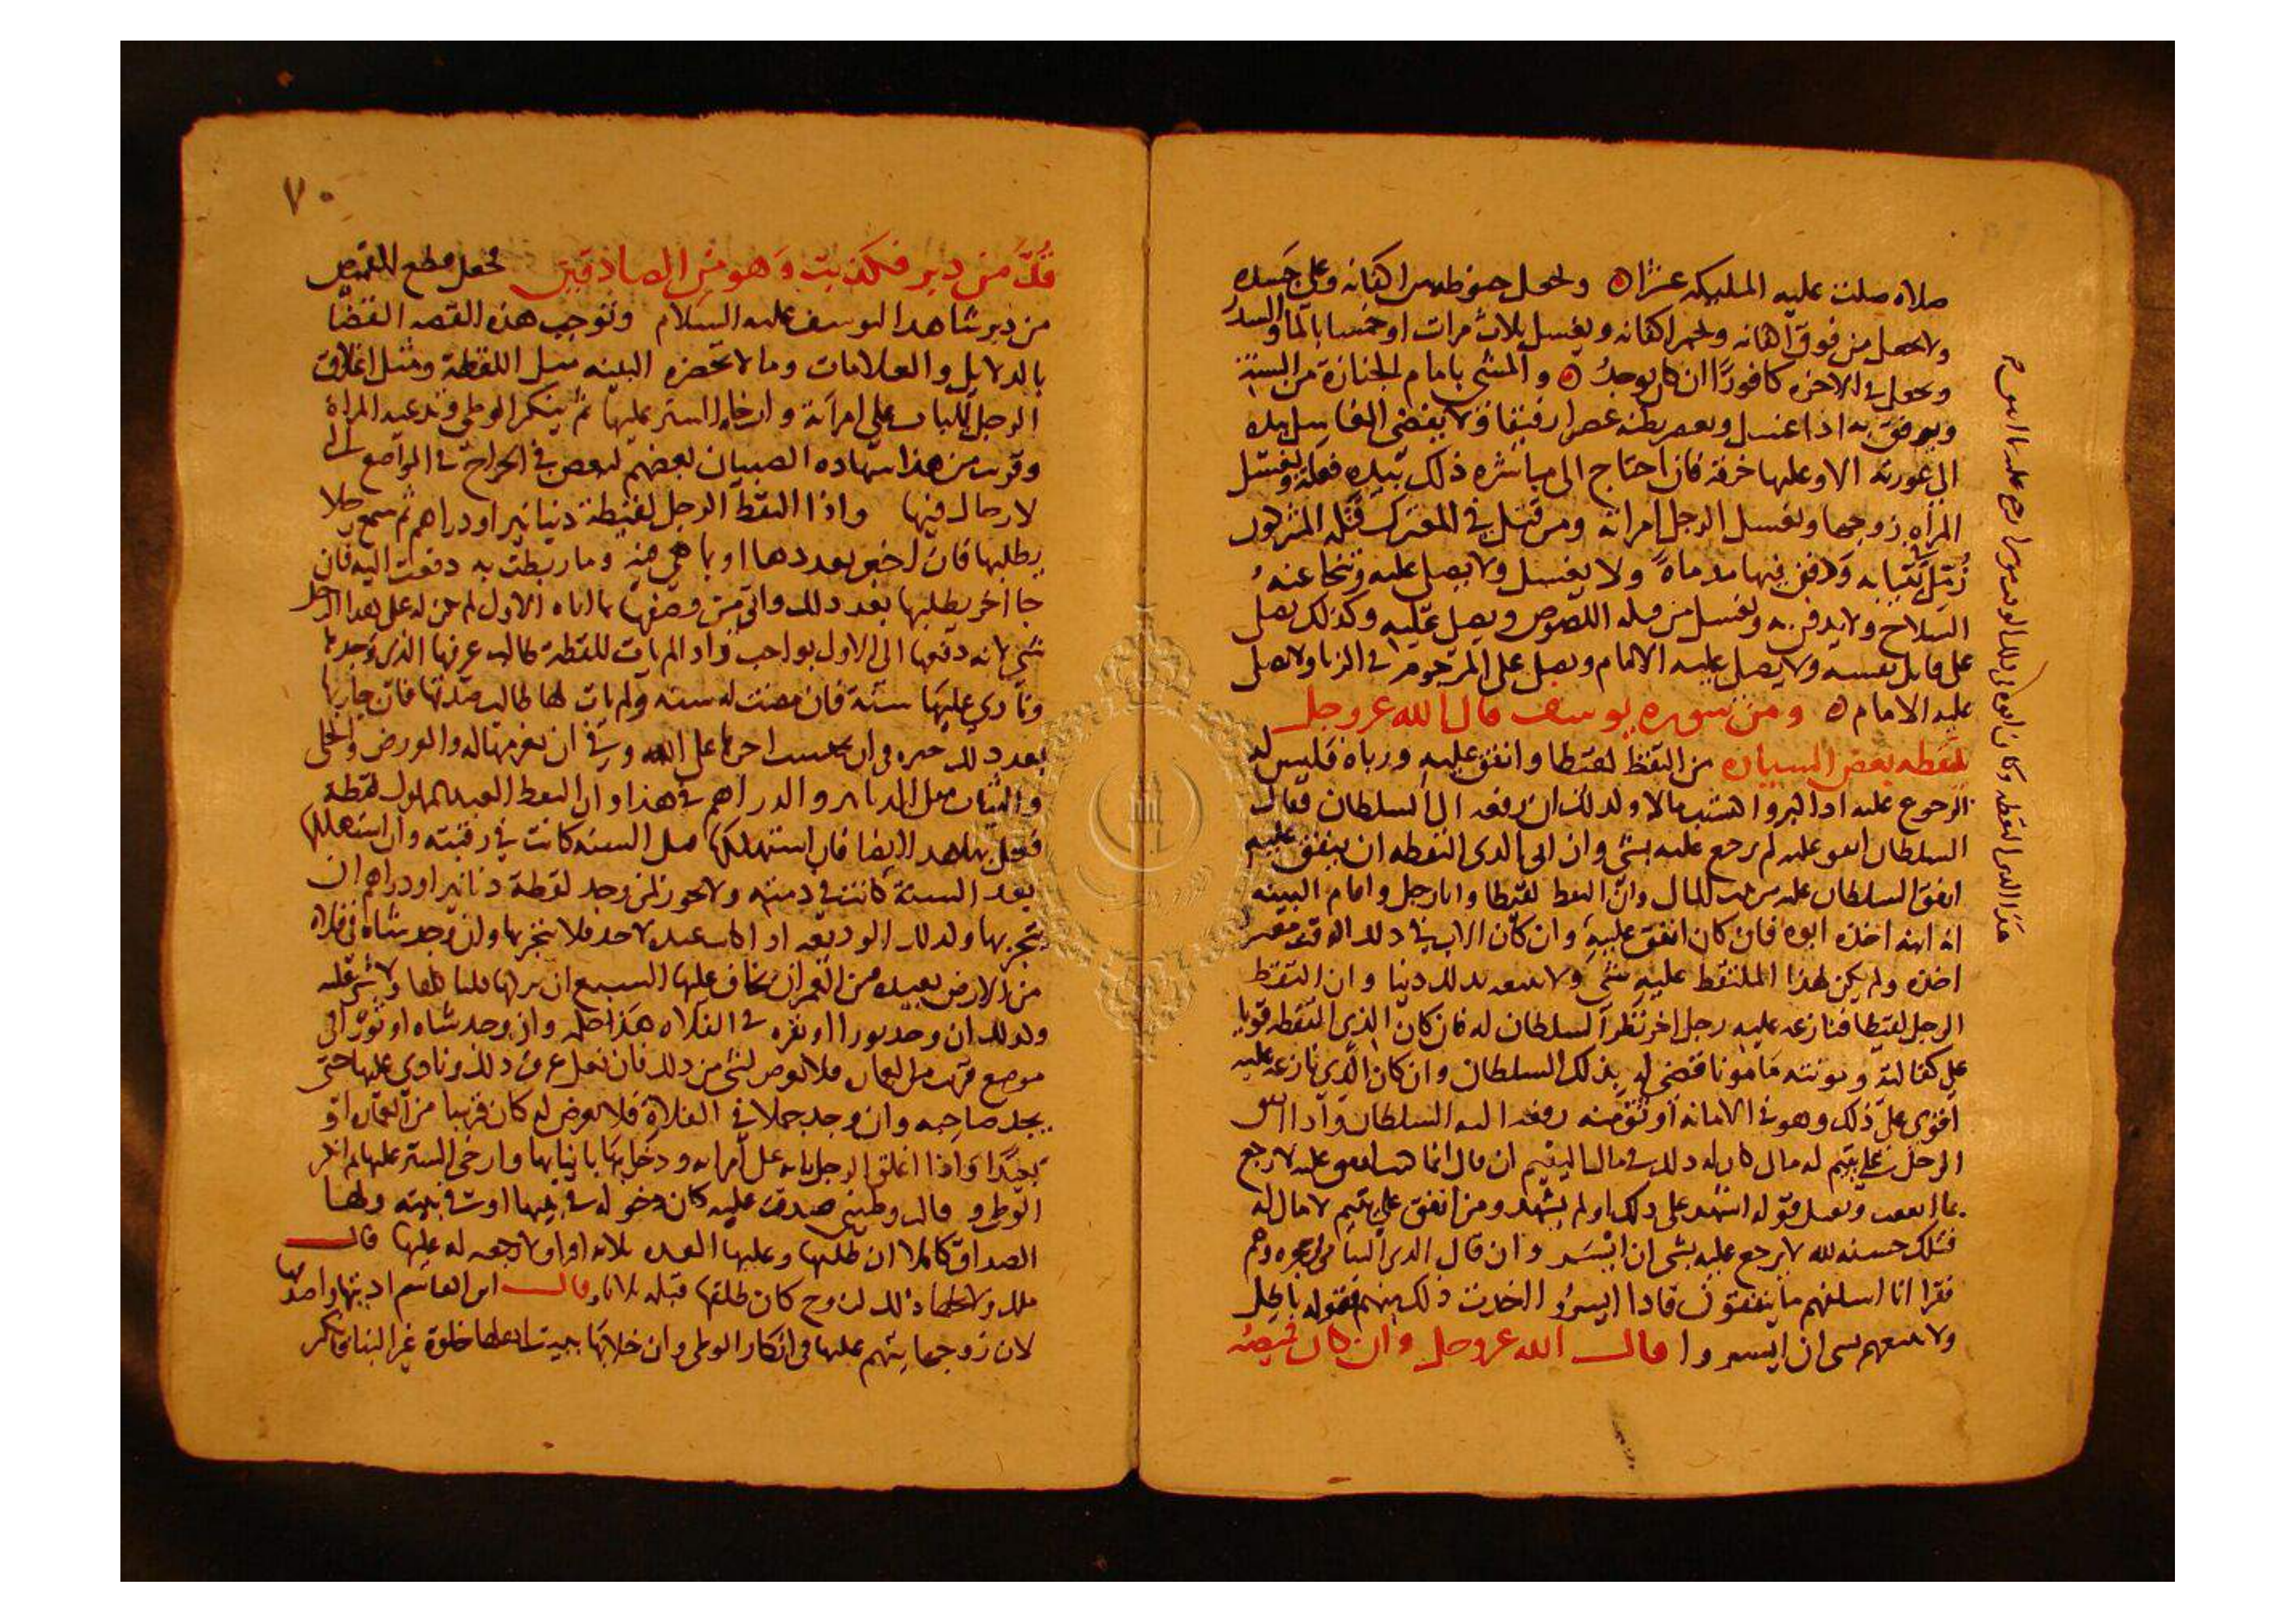 صلاه صلت عليه المليكه عشرا ويجعل حنوطه بين اكفانه وعلى جسده
ولا يجعل من فوق اكفانه ويجمر اكفانه ويغسل ثلاث مرات او خمسا بالما والسدر
ويجعل في الاخره كافورا ان كان يوجد والمشي بامام الجنازة من السنة
ويرفق به اذا غسل ويعصر بطنه عصرا رفيقا ولا يفضي الغاسل بيده
الى عورته الا وعليها خرقه فان احتاج الى مباشره ذلك بيده فعله وتغسل
المراه زوجها ويغسل الرجل امراته ومن قتل في المعترك قتله المشركون
زمل في ثيابه ودفن فيها بدمايه ولا يغسل ولا يصلى عليه وينحا عنه
السلاح ولا يدفن به ويغسل من قتله اللصوص ويصلى عليه وكذلك يصلى
على قاتل نفسه ولا يصلي عليه الامام ويصلى على المرجوم في الزنا ولا يصلى
عليه الامام ومن سوره يوسف قال الله عز وجل
يلتقطه بعض السياره من التقط لقيطا وانفق عليه ورباه فليس له
الرجوع عليه اذا كبر وافتيد مالا وكذلك ان رفعه الى السلطان فقال
السلطان انفق عليه لم يرجع عليه بشي وان ابى الذي التقطه ان ينفق عليه
انفق السلطان عليه من بيت المال وان التقط لقيطا واتا رجل واقام البينه
انه ابنه اخذه ابوه فان كان انفق عليه وان كان الاب في ذلك الوقت معسرا
اخذه ولم يكن لهذا الملتقط عليه شي ولا يتبعه بذلك دينا وان التقط
الرجل لقيطا فنازعه عليه رجل اخر نظر السلطان له فان كان الذي التقطه قويا
على كفالته ومونته مامونا قضى له بذلك السلطان وان كان الذي نازعه عليه
اقوى على ذلك وهو في الامانه اوثق منه دفعه اليه السلطان واذا انفق
الرجل على يتيم له مال كان له ذلك في مال اليتيم ان قال انما كنت انفق عليه لارجع
بما انفقت ويقبل قوله اشهد على ذلك او لم يشهد ومن انفق على يتيم لا مال له
فتلك حسنه لله لا يرجع عليه بشي ان ايسر وان قال الذي اليتامى في حجره وهم
فقرا انا اسلفهم ما ينفقون فاذا ايسروا اخذت ذلك منهم فقوله باطل
ولا يتبعهم بشي ان ايسروا قال الله عز وجل وان كان قميصه
هذا الذي التقطه وكان
٧٠
قد من دبر فكذبت وهو من الصادقين فجعل قطع القميص
من دبر شاهدا ليوسف عليه السلام وتوجب هذه القصه القضا
بالدلايل والعلامات وما لا تحضره البينه مثل اللقطة ومثل اغلاق
الرجل الباب على امراته وارخايه الستر عليها ثم ينكر الوطي وتدعيه المراة
وقريب من هذا شهاده الصبيان بعضهم لبعض في الجراح في المواضع التي
لا رجال فيها واذا التقط الرجل لقيطة دنانير او دراهم ثم سمع رجلا
يطلبها فان اخبر بعددها او بما هي فيه وما ربطت به دفعت اليه فان
جا اخر يطلبها بعد ذلك واتى من وصفها بما اتاه الاول لم يكن له على هذا الرجل
شي لانه دفعها الى الاول بواجب واذا لم يات للقطة طالب عرفها الذي وجدها
ونادى عليها سنة فان مضت له سنه ولم يات لها طالب صدقها فان جا ربها
بعد ذلك خيره في ان يحتسب اجرها على الله وفي ان يغرمها له والورق والحلى
والثياب مثل الدنانير والدراهم في هذا وان التقط العبد المملوك لقطة
فعل بها هذا ايضا فان استهلكها قبل السنه كانت في رقبته وان استهلكها
بعد السنة كانت في ذمته ولا يجوز لمن وجد لقطة دنانير او دراهم ان
يتجر بها وكذلك الوديعه اذا كانت عنده لاحد فلا يتجر بها وان وجد شاة في فلاة
من الارض بعيده من العمران يخاف عليها السبع ان تركها فلياكلها ولا شي عليه
وكذلك ان وجد ثورا او بقره في الفلاه هكذا اكله وان وجد شاه او ثورا في
موضع قريب من العمران فلا يعرض لشي من ذلك فان فعل عرف ذلك ونادى عليها حتى
يجد صاحبه وان وجد جملا في الفلاة فلا يعرض له كان قريبا من العمران او
بعيدا واذا اغلق الرجل بابه على امراته ودخل بها بانيا بها وارخى الستر عليها ثم انكر
الوطي وقالت وطيني صدقت عليه كان دخوله في بيتها او في بيته ولها
الصداق كاملا ان طلقها وعليها العده ثلاثه اقرا ولا رجعه له عليها قال
ملك ولا يحلها ذلك لزوج كان طلقها قبله ثلاثا وقال ابن القاسم ادينها واصدقها
لان زوجها يتهم عليها في انكار الوطي وان خلا بها ببيت اهلها خلوة غير البنا فانكر